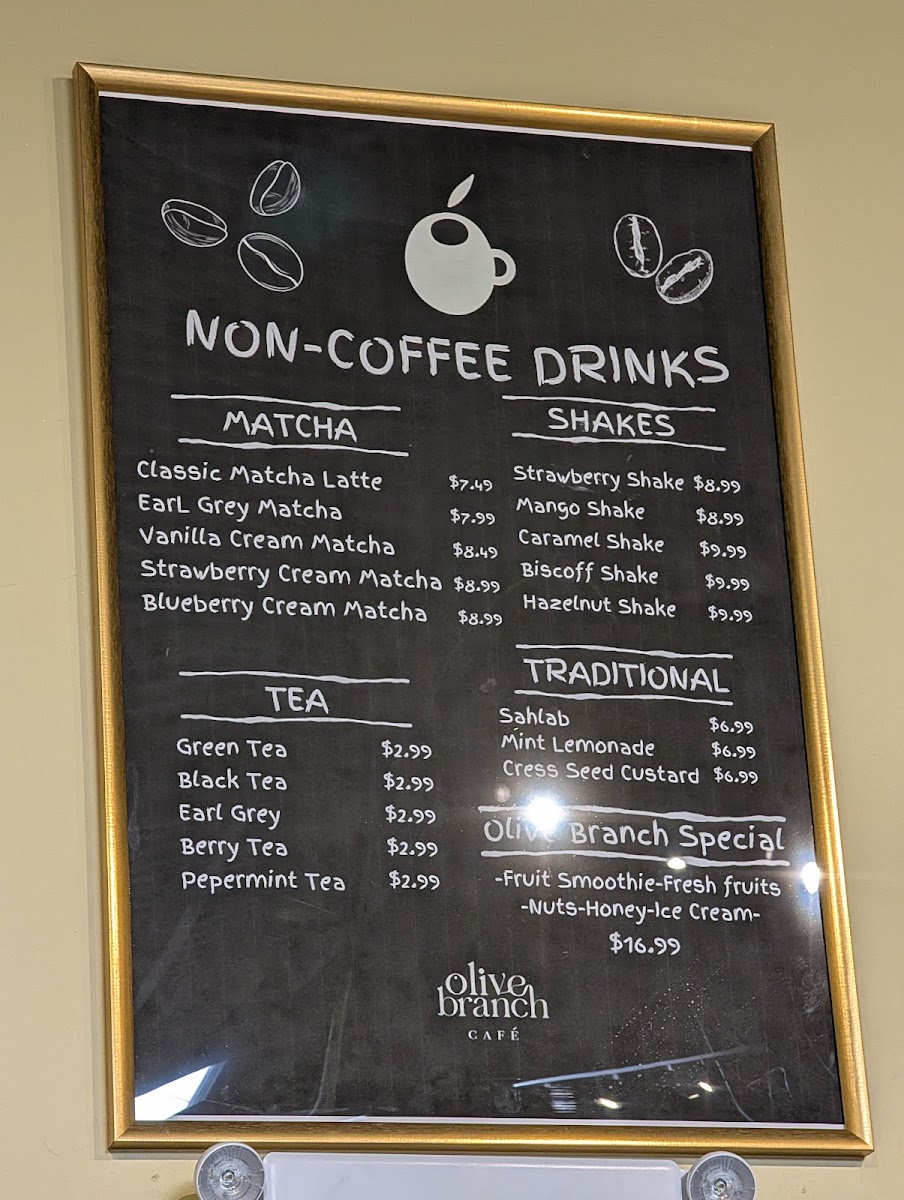 NON-COFFEE DRINKS
MATCHA
Classic Matcha Latte $7.49
Earl Grey Matcha $7.99
Vanilla Cream Matcha $8.49
Strawberry Cream Matcha $8.99
Blueberry Cream Matcha $8.99
TEA
Green Tea $2.99
Black Tea $2.99
Earl Grey $2.99
Berry Tea $2.99
Pepermint Tea $2.99
SHAKES
Strawberry Shake $8.99
Mango Shake $8.99
Caramel Shake $9.99
Biscoff Shake $9.99
Hazelnut Shake $9.99
TRADITIONAL
Sahlab $6.99
Mint Lemonade $6.99
Cress Seed Custard $6.99
Olive Branch Special
-Fruit Smoothie-Fresh fruits
-Nuts-Honey-Ice Cream-
$16.99
olive
branch
CAFÉ